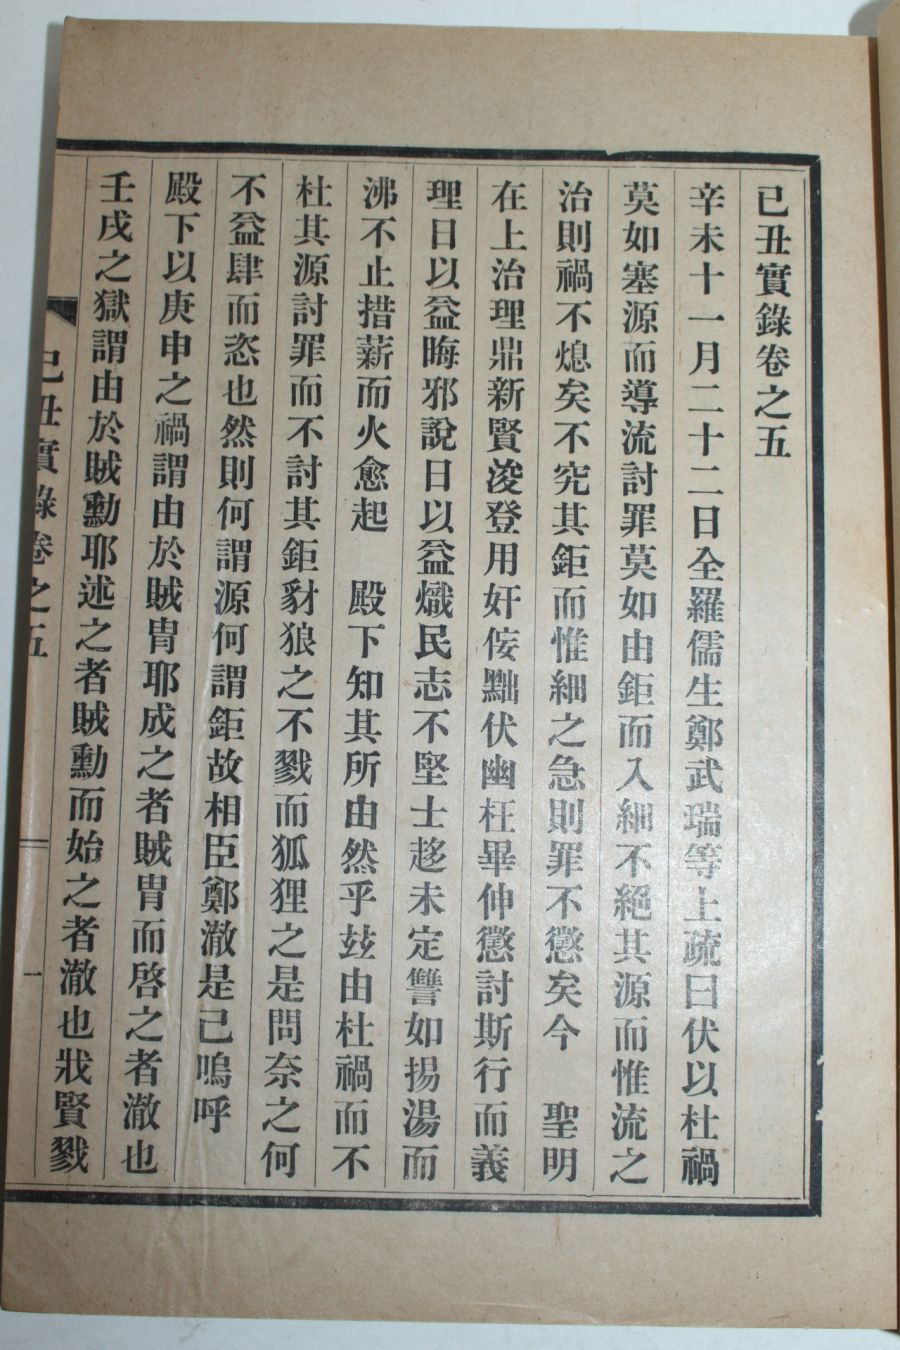 己丑實錄卷之五
辛未十一月二十二日全羅儒生鄭武瑞等上疏曰伏以杜禍
莫如塞源而導流討罪莫如由鉅而入細不絕其源而惟流之
治則禍不熄矣不究其鉅而惟細之急則罪不懲矣今　聖明
在上治理鼎新賢浚登用奸侫黜伏幽枉畢伸懲討斯行而義
理日以益晦邪說日以益熾民志不堅士趍未定讐如揚湯而
沸不止措薪而火愈起　殿下知其所由然乎玆由杜禍而不
杜其源討罪而不討其鉅豺狼之不戮而狐狸之是問奈之何
不益肆而恣也然則何謂源何謂鉅故相臣鄭澈是已嗚呼
殿下以庚申之禍謂由於賊胄耶成之者賊胄而啓之者澈也
壬戌之獄謂由於賊勳耶述之者賊勳而始之者澈也戕賢戮
己丑實錄卷之五
一